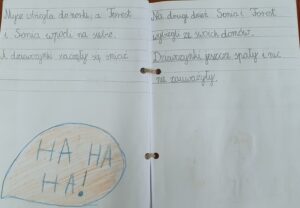 Mysz uciekła do norki, a Forest
i Sonia wpadli na siebie.
I dziewczynki zaczęły się śmiać
HA HA
HA!
Na drugi dzień Sonia i Forest
wybiegli ze swoich domów.
Dziewczynki jeszcze spały i nic
nie zauważyły.